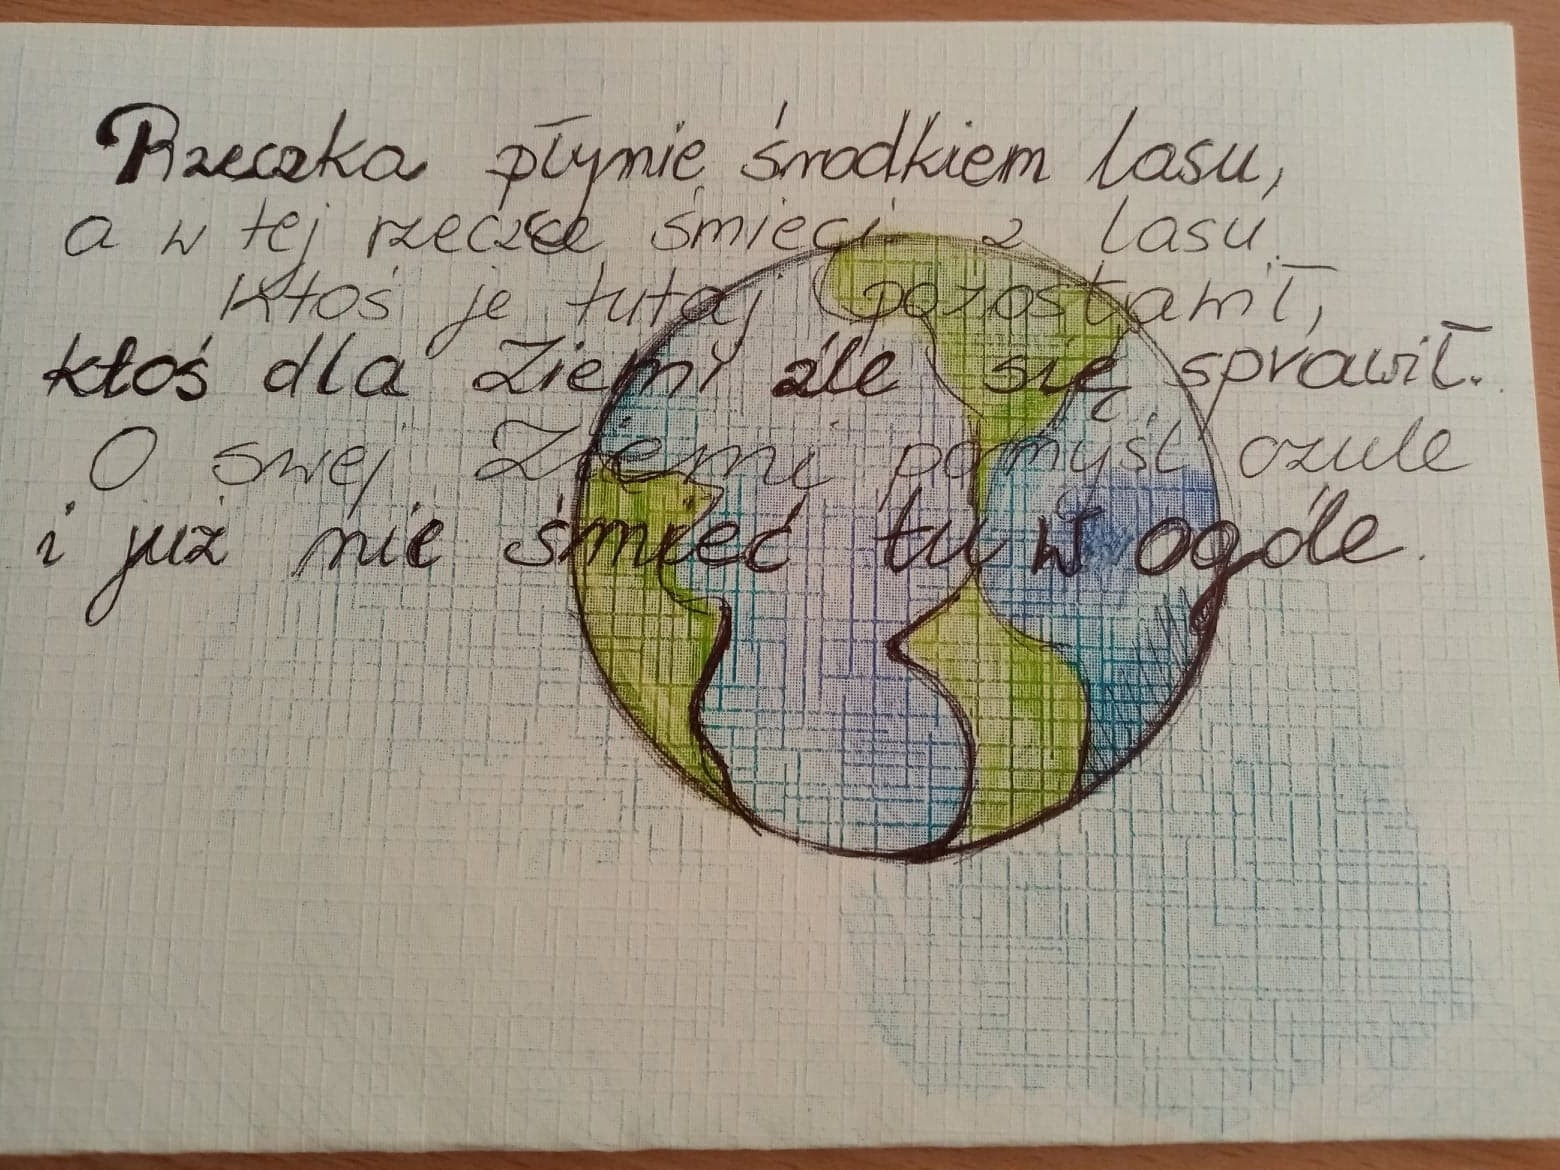 Rzeczka płynie środkiem lasu,
a w tej rzeczce śmieci z lasu.
Ktoś je tutaj pozostawił,
ktoś dla Ziemi źle się sprawił.
O swej Ziemi pomyśl czule
i już nie śmieć tu w ogóle.